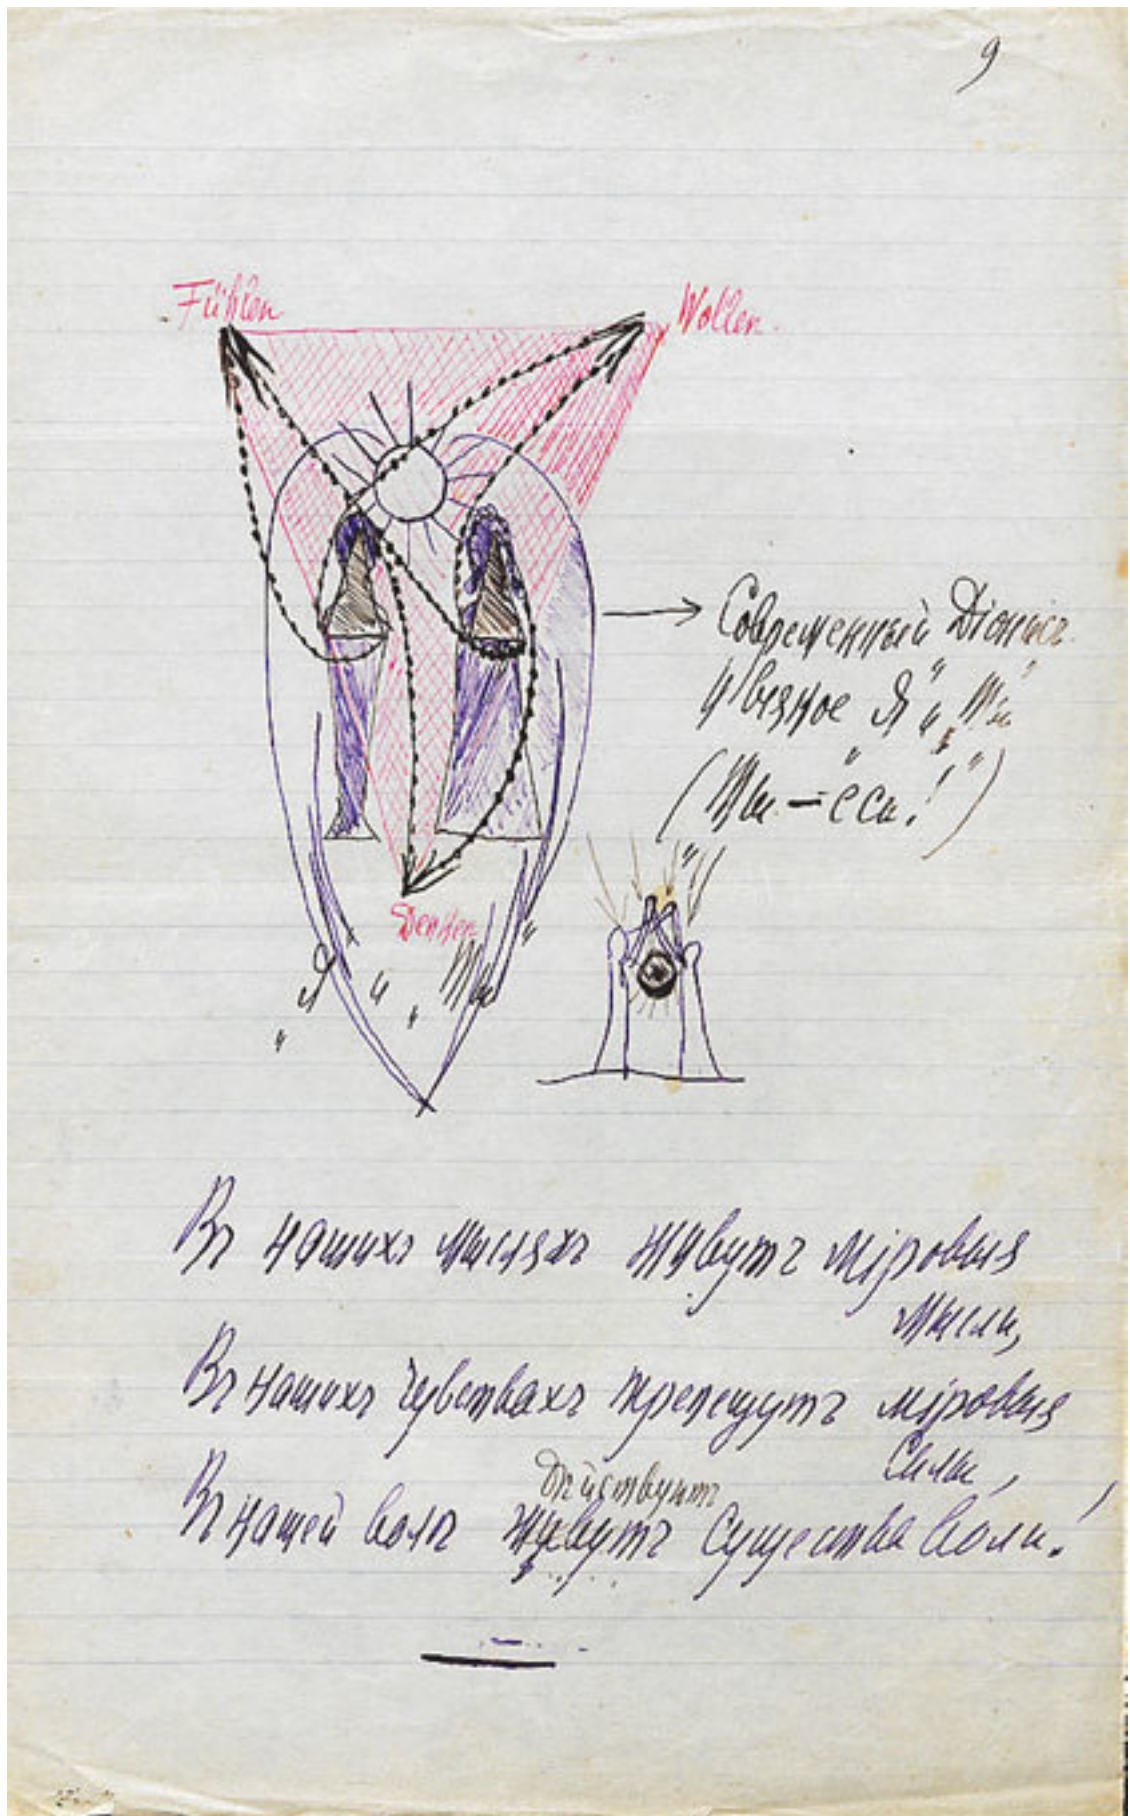 9
Fühlen
Wollen
Современный Діонисъ
и вѣчное „Я“ и „Ты“
(„Ты – еси!“)
Denken
„Я“ и „Ты“
Въ нашихъ мысляхъ живутъ міровыя
мысли,
Въ нашихъ чувствахъ трепещутъ міровыя
силы,
дѣйствуютъ
Въ нашей волѣ живутъ существа воли!